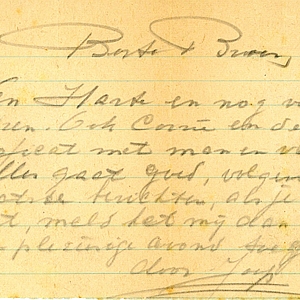 Beste Broer,
en Harte en nog v
ren. Ook Corrie en de
met man en
Alles gaat goed, volgen
berichten, als je
t, meld het mij dan
plezierige avond toege
door Joop